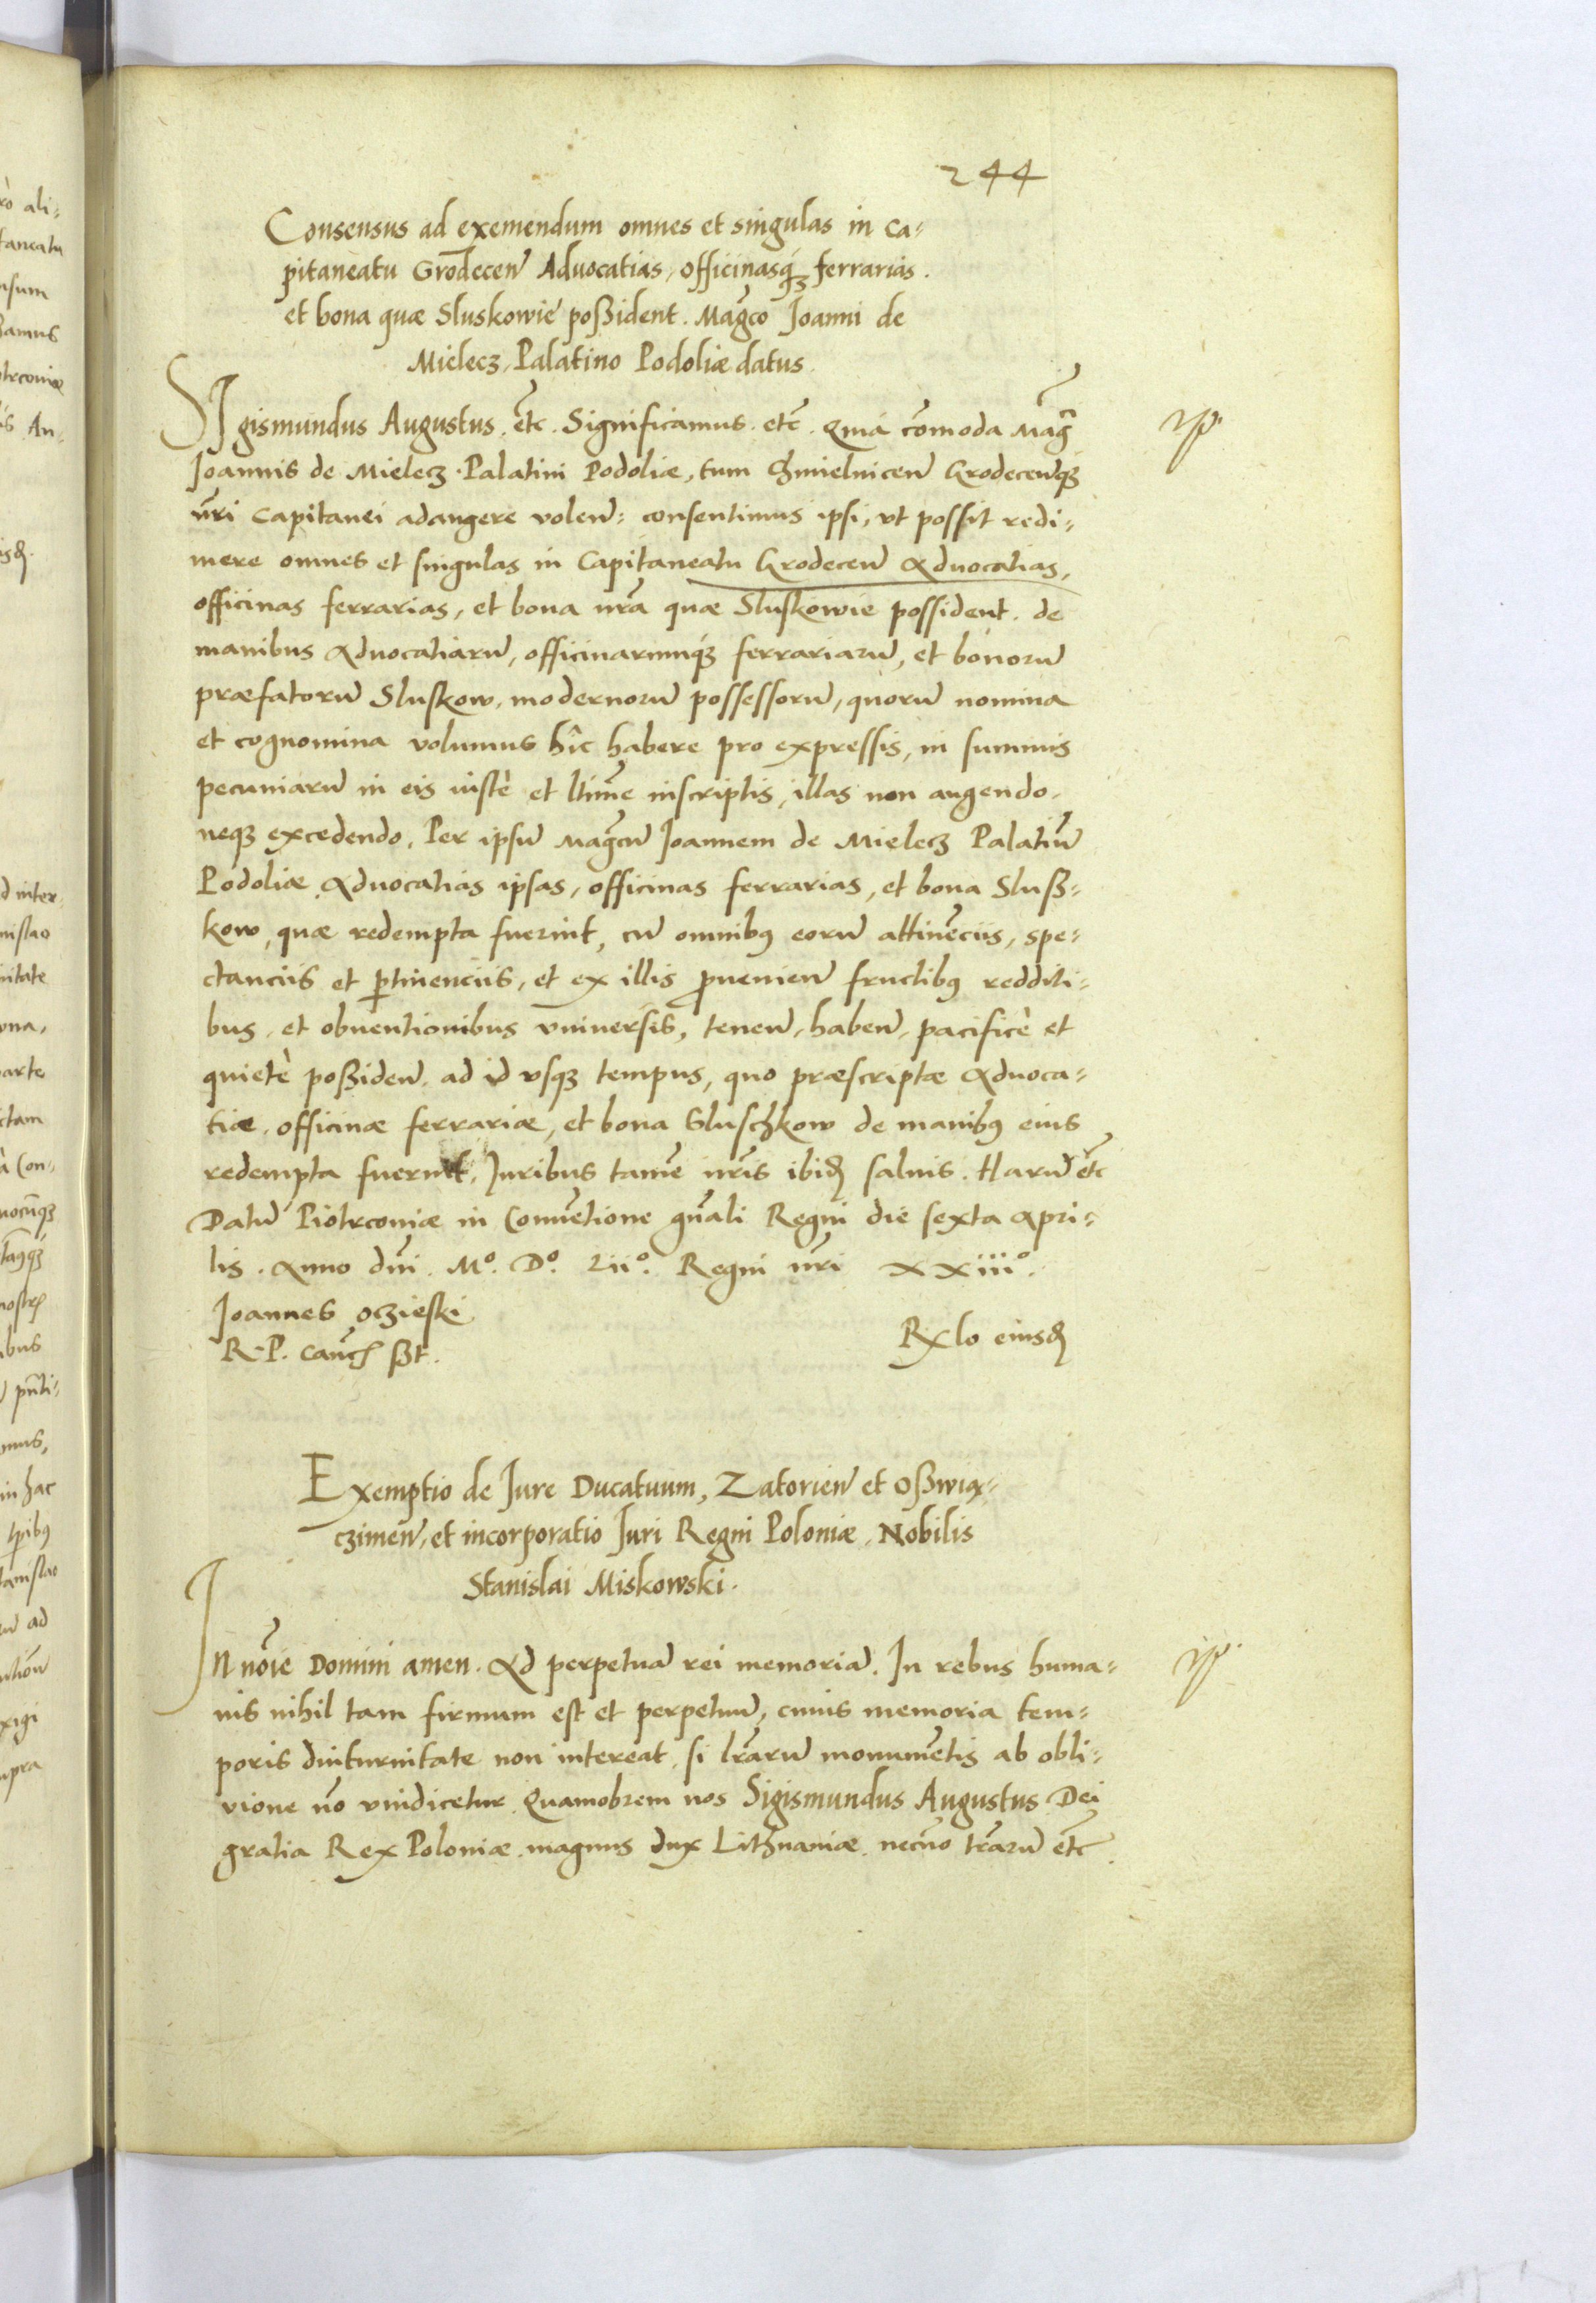 244
Consensus ad exemendum omnes et singulas in Ca-
pitaneatu Grodecen̄ Advocatias, officinasq́ꝫ ferrarias.
et bona quæ Sluskowie poßident. Mag̃co Joanni de
Mielecz, Palatino Podoliæ datus.
SIgismundus Augustus. et̃c. Significamus. et̃c. Quia com̃oda Mag̃ci
Joannis de Mielecz. Palatini Podoliæ, tum Chmielnicen̄ Grodecen̄qꝫ
nr̃i Capitanei adangere volen̄: consentimus ipsi, vt possit redi-
mere omnes et singulas in Capitaneatu Grodecen̄ Aduocatias,
officinas ferrarias, et bona nr̃a quæ Sluskowie possident. de
manibus Aduocatiarū, officinarumq́ꝫ ferrariarū, et bonorū
præfatorū Sluskow, modernorū possessorū, quorū nomina
et cognomina volumus hîc habere pro expressis, in summis
pecuniarū in eis iustè et ltim̃e inscriptis, illas non augendo.
neqꝫ excedendo. Per ipsū Mag̃cū Joannem de Mielecz Palatiñu
Podoliæ Aduocatias ipsas, officinas ferrarias, et bona Sluß-
kow, quæ redempta fuerint, cū omnibꝰ eorū attinẽciis, spe-
ctanciis et ꝑtinenciis, et ex illis ꝓuenien̄ fructibꝰ redditi-
bus, et obuentionibus vniuersis, tenen̄, haben̄, pacificè et
quietè poßiden̄. ad id vsqꝫ tempus, quo præscriptæ Aduoca-
tiæ, officinæ ferrariæ, et bona Sluschkow de manibꝰ eius
redempta fuerint. Juribus tamẽ nr̃is ibid̃ saluis. Harū et̃c
Datū Piotrconiæ in Conuẽtione gñali Regni die sexta Apri-
lis. Anno dñi. Mº. Dº. Lііº. Regni nr̃i XXiiiº.
Joannes Oczieski
R. P. Canc̃ ßt.
Rȝlo eiusd̃
Exemptio de Jure Ducatuum, Zatorien̄ et Oßwią-
czimen̄, et incorporatio Juri Regni Poloniæ, Nobilis
Stanislai Miskowski.
IN nõie Domini amen. Ad perpetuā rei memoriā. In rebus huma-
nis nihil tam firmum est et perpetuū, cuius memoria tem-
poris diuturnitate non intereat, si lr̃arū monumẽtis ab obli-
vione nõ vindicetur. Quamobrem nos Sigismundus Augustus Dei
gratia Rex Poloniæ. magnus dux Lithuaniæ. necño tr̃arū et̃c